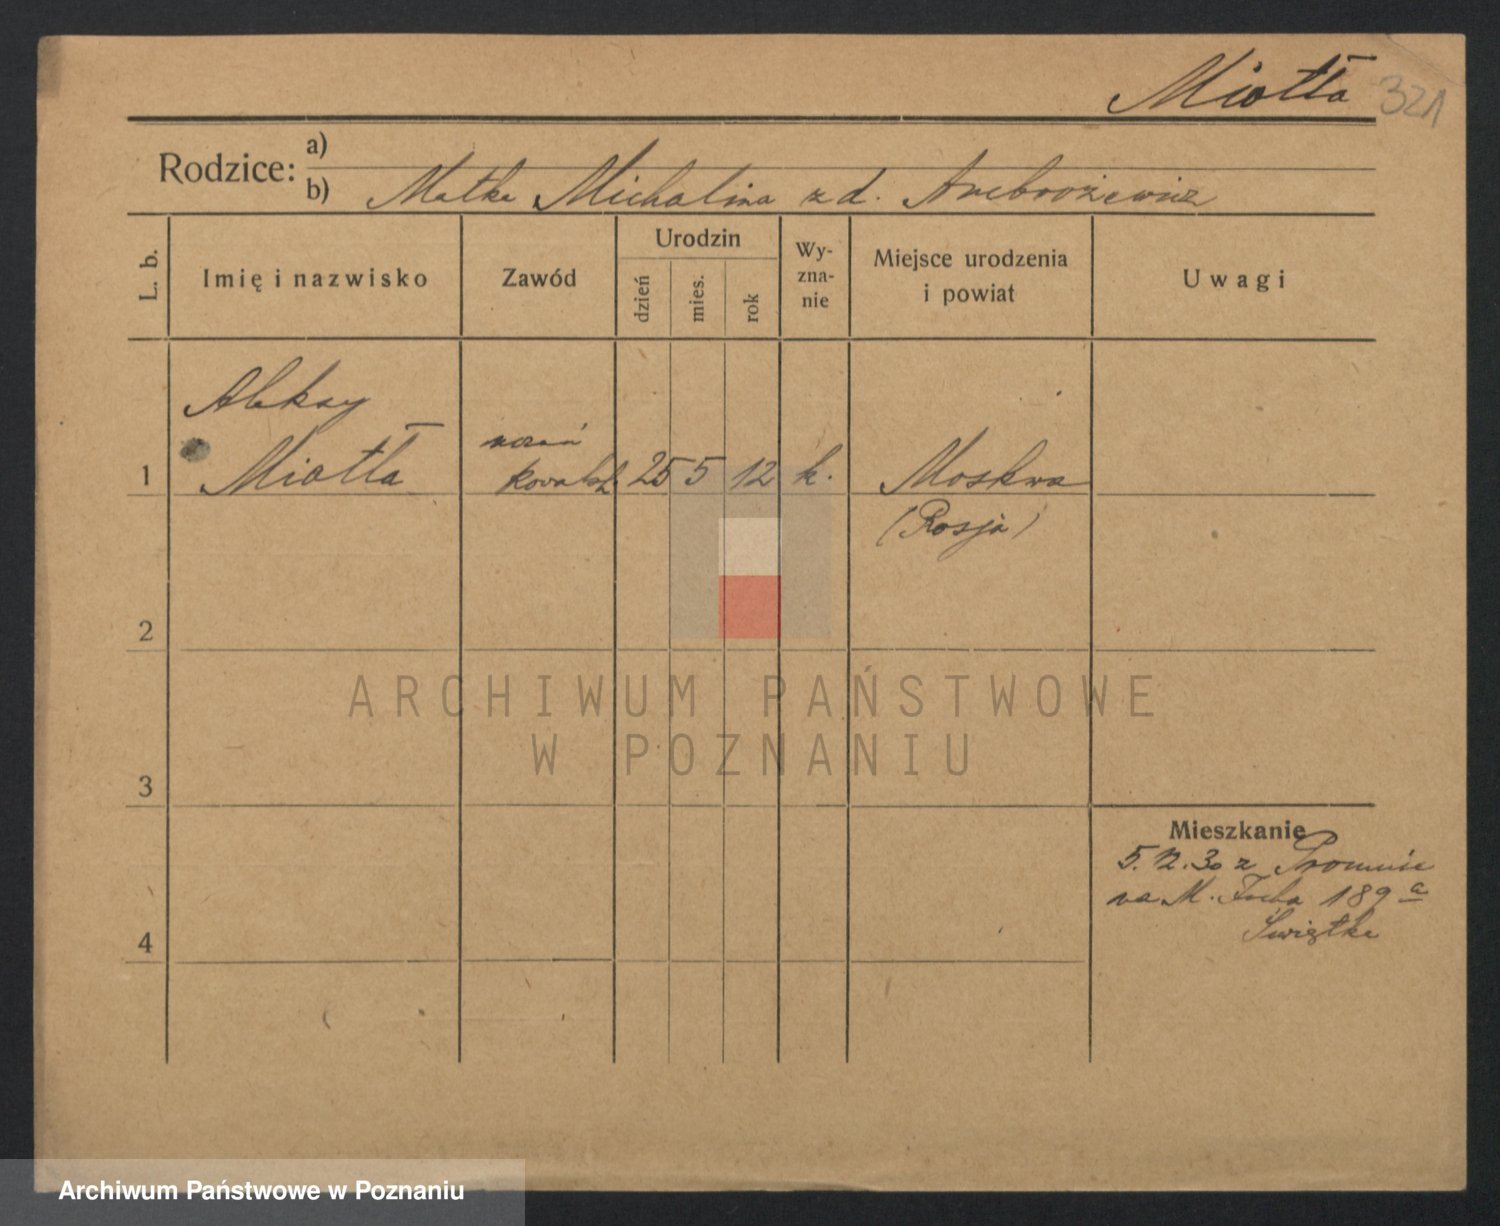 Miotła 321
Rodzice: a)
b) Matka Michalina z d. Ambrożewicz
L. b.
Imię i nazwisko
Zawód
Urodzin
dzień
mies.
rok
Wy-
zna-
nie
Miejsce urodzenia
i powiat
Uwagi
Aleksy
1 Miotła
uczeń
kowalsk. 25 5 12 k. Moskwa
(Rosja)
2
ARCHIWUM PAŃSTWOWE
W POZNANIU
3
Mieszkanie
5.12.30 z
na M. Focha 189 a
4
Archiwum Państwowe w Poznaniu